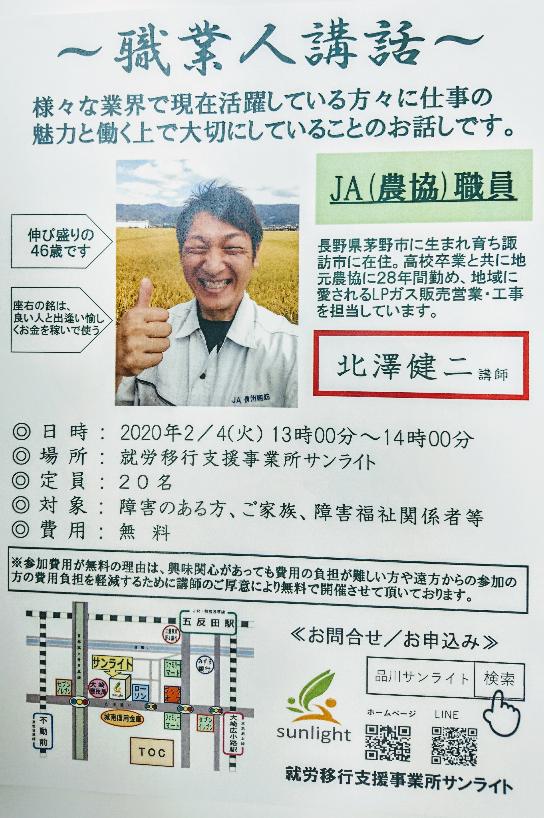 ～職業人講話～
様々な業界で現在活躍している方々に仕事の
魅力と働く上で大切にしていることのお話しです。
JA(農協)職員
伸び盛りの
46歳です
座右の銘は、
良い人と出逢い愉し
くお金を稼いで使う
長野県茅野市に生まれ育ち諏
訪市に在住。高校卒業と共に地
元農協に28年間勤め、地域に
愛されるLPガス販売営業・工事
を担当しています。
北澤健二 講師
◎ 日 時 : 2020年2／4(火) 13時00分～14時00分
◎ 場 所 : 就労移行支援事業所サンライト
◎ 定 員 : 20名
◎ 対 象 : 障害のある方、ご家族、障害福祉関係者等
◎ 費 用 : 無 料
※参加費用が無料の理由は、興味関心があっても費用の負担が難しい方や遠方からの参加の
方の費用負担を軽減するために講師のご厚意により無料で開催させて頂いております。
五反田駅
サンライト
セブン
イレブン
大崎
郵便局
ローソン
ファミリー
マート
みずほ
銀行
城南信用金庫
ファミリー
マート
セブン
イレブン
不動前
TOC
大崎広小路駅
≪お問合せ／お申込み≫
品川サンライト 検索
sunlight
ホームページ
LINE
就労移行支援事業所サンライト